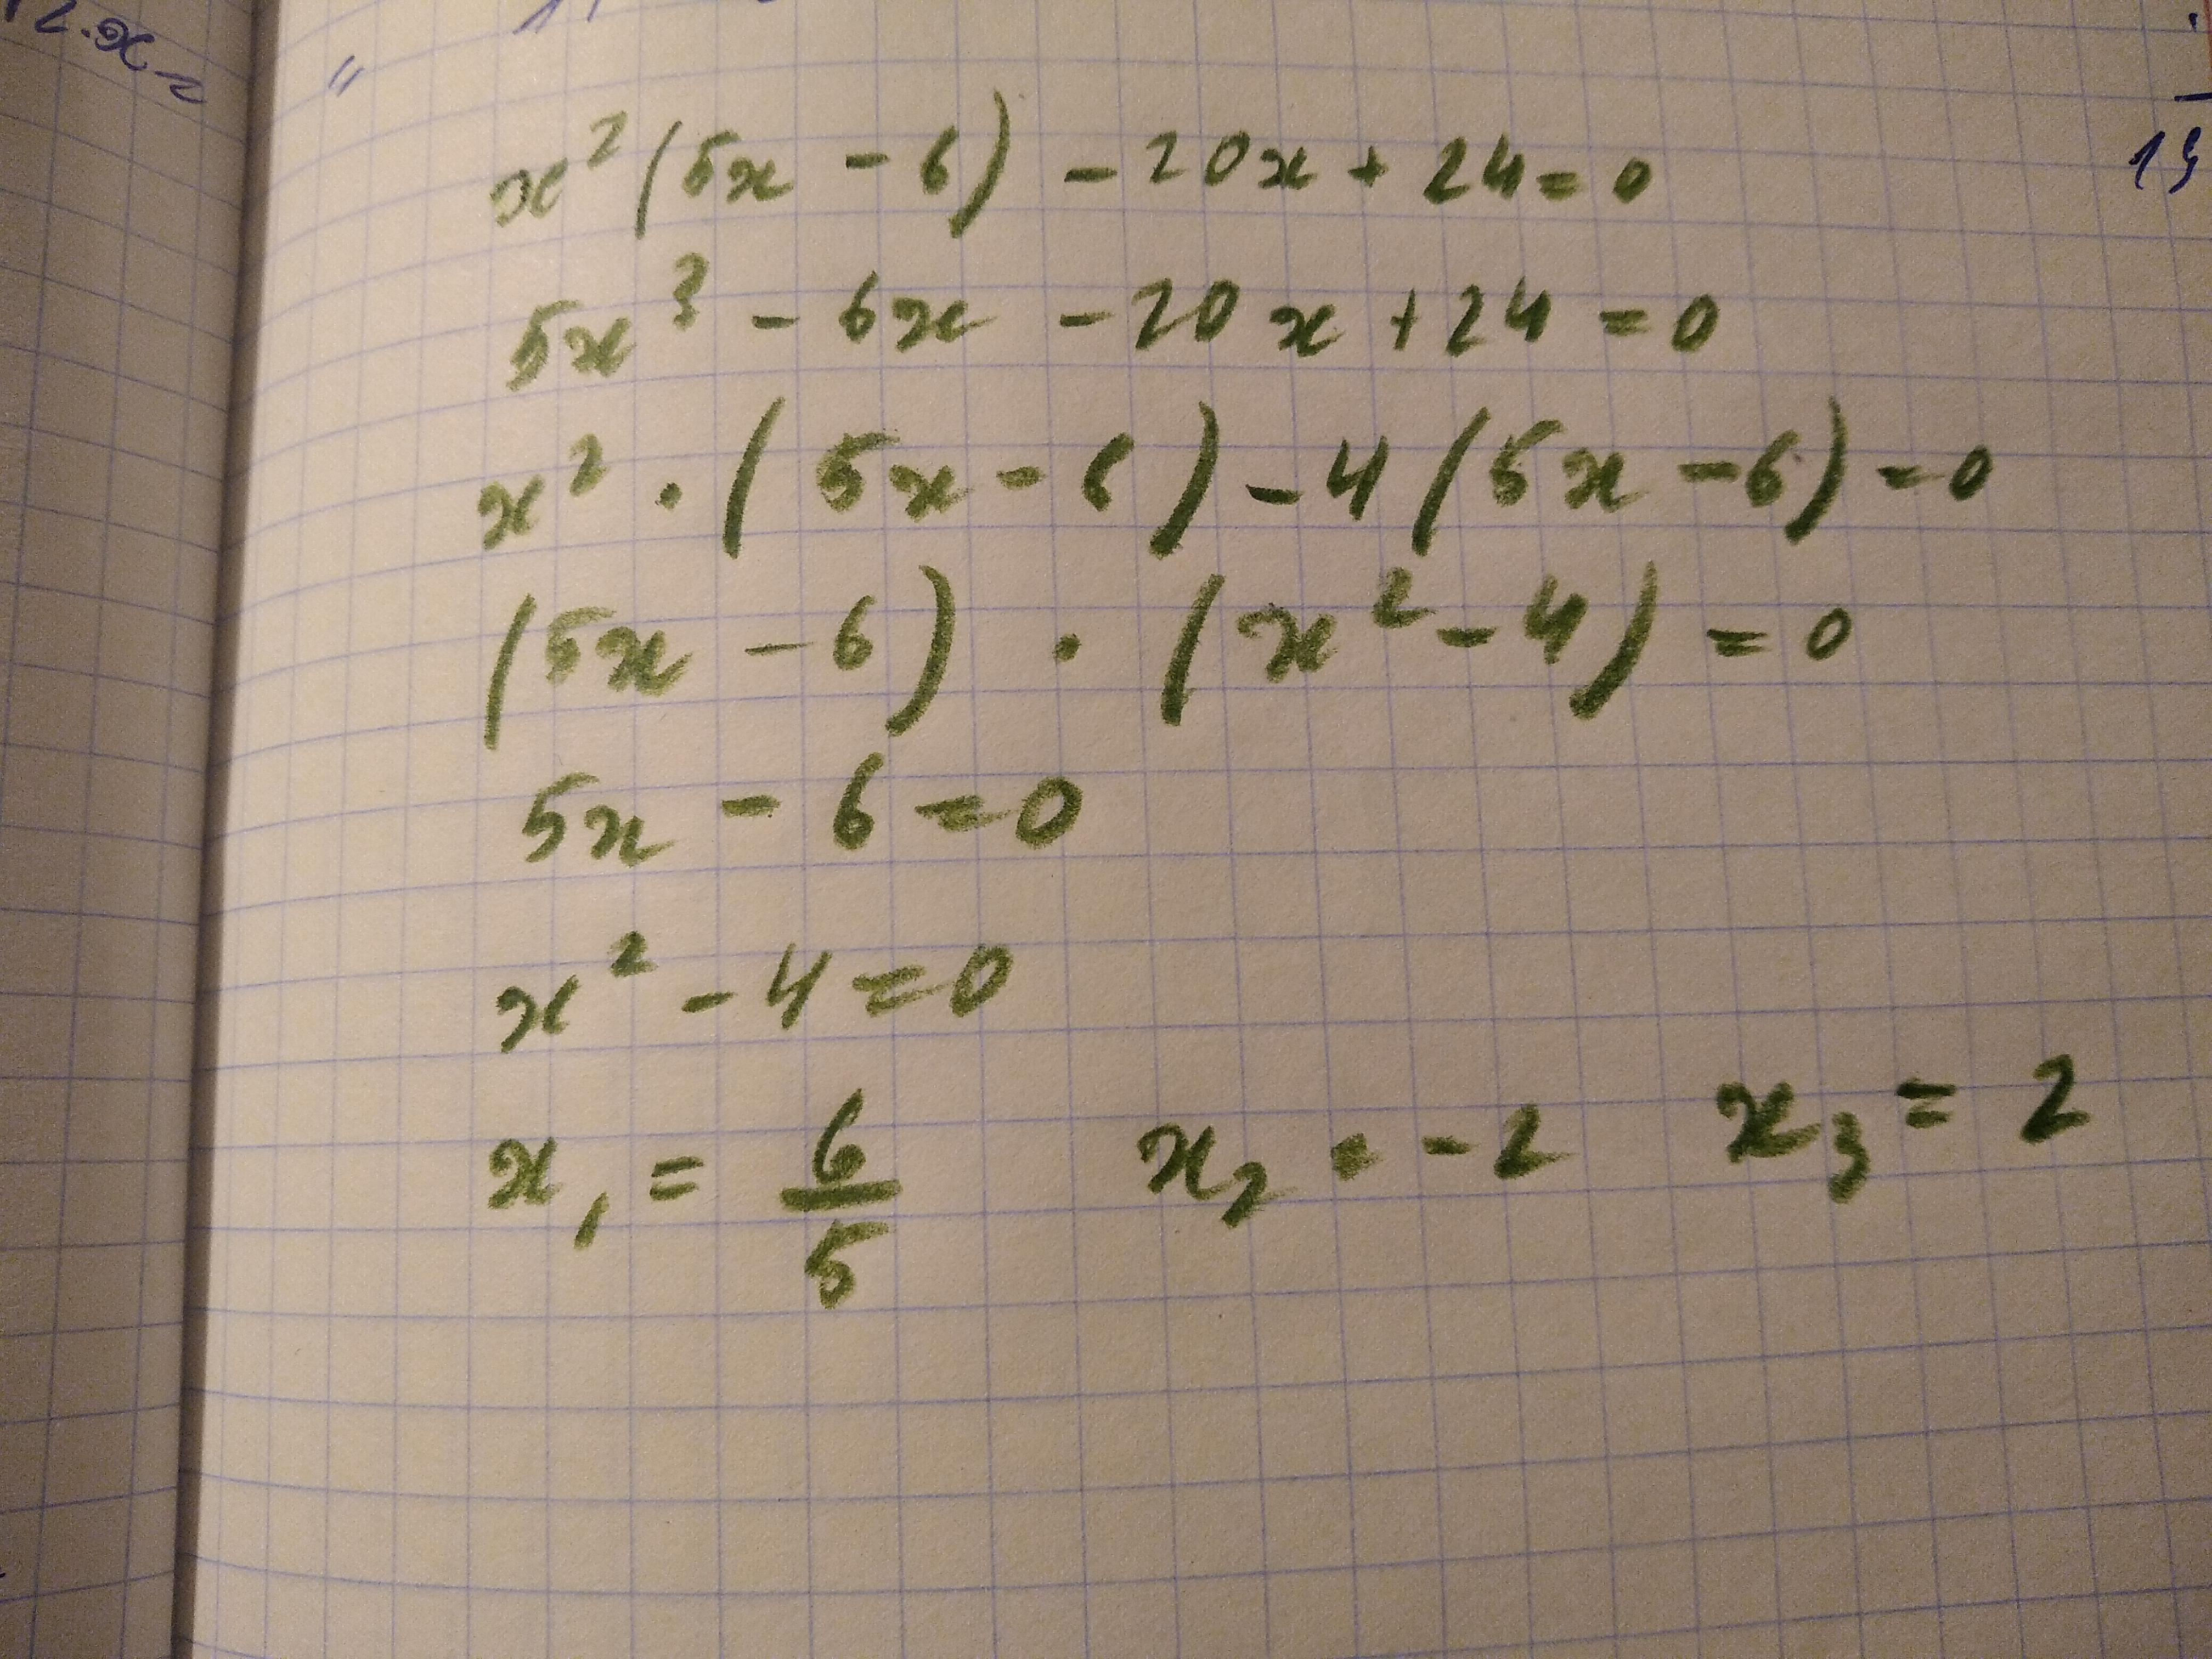 x²(5x - 6) - 20x + 24 = 0
5x³ - 6x - 20x + 24 = 0
x² · (5x - 6) - 4(5x - 6) = 0
(5x - 6) · (x² - 4) = 0
5x - 6 = 0
x² - 4 = 0
x₁ = 6/5 x₂ = -2 x₃ = 2